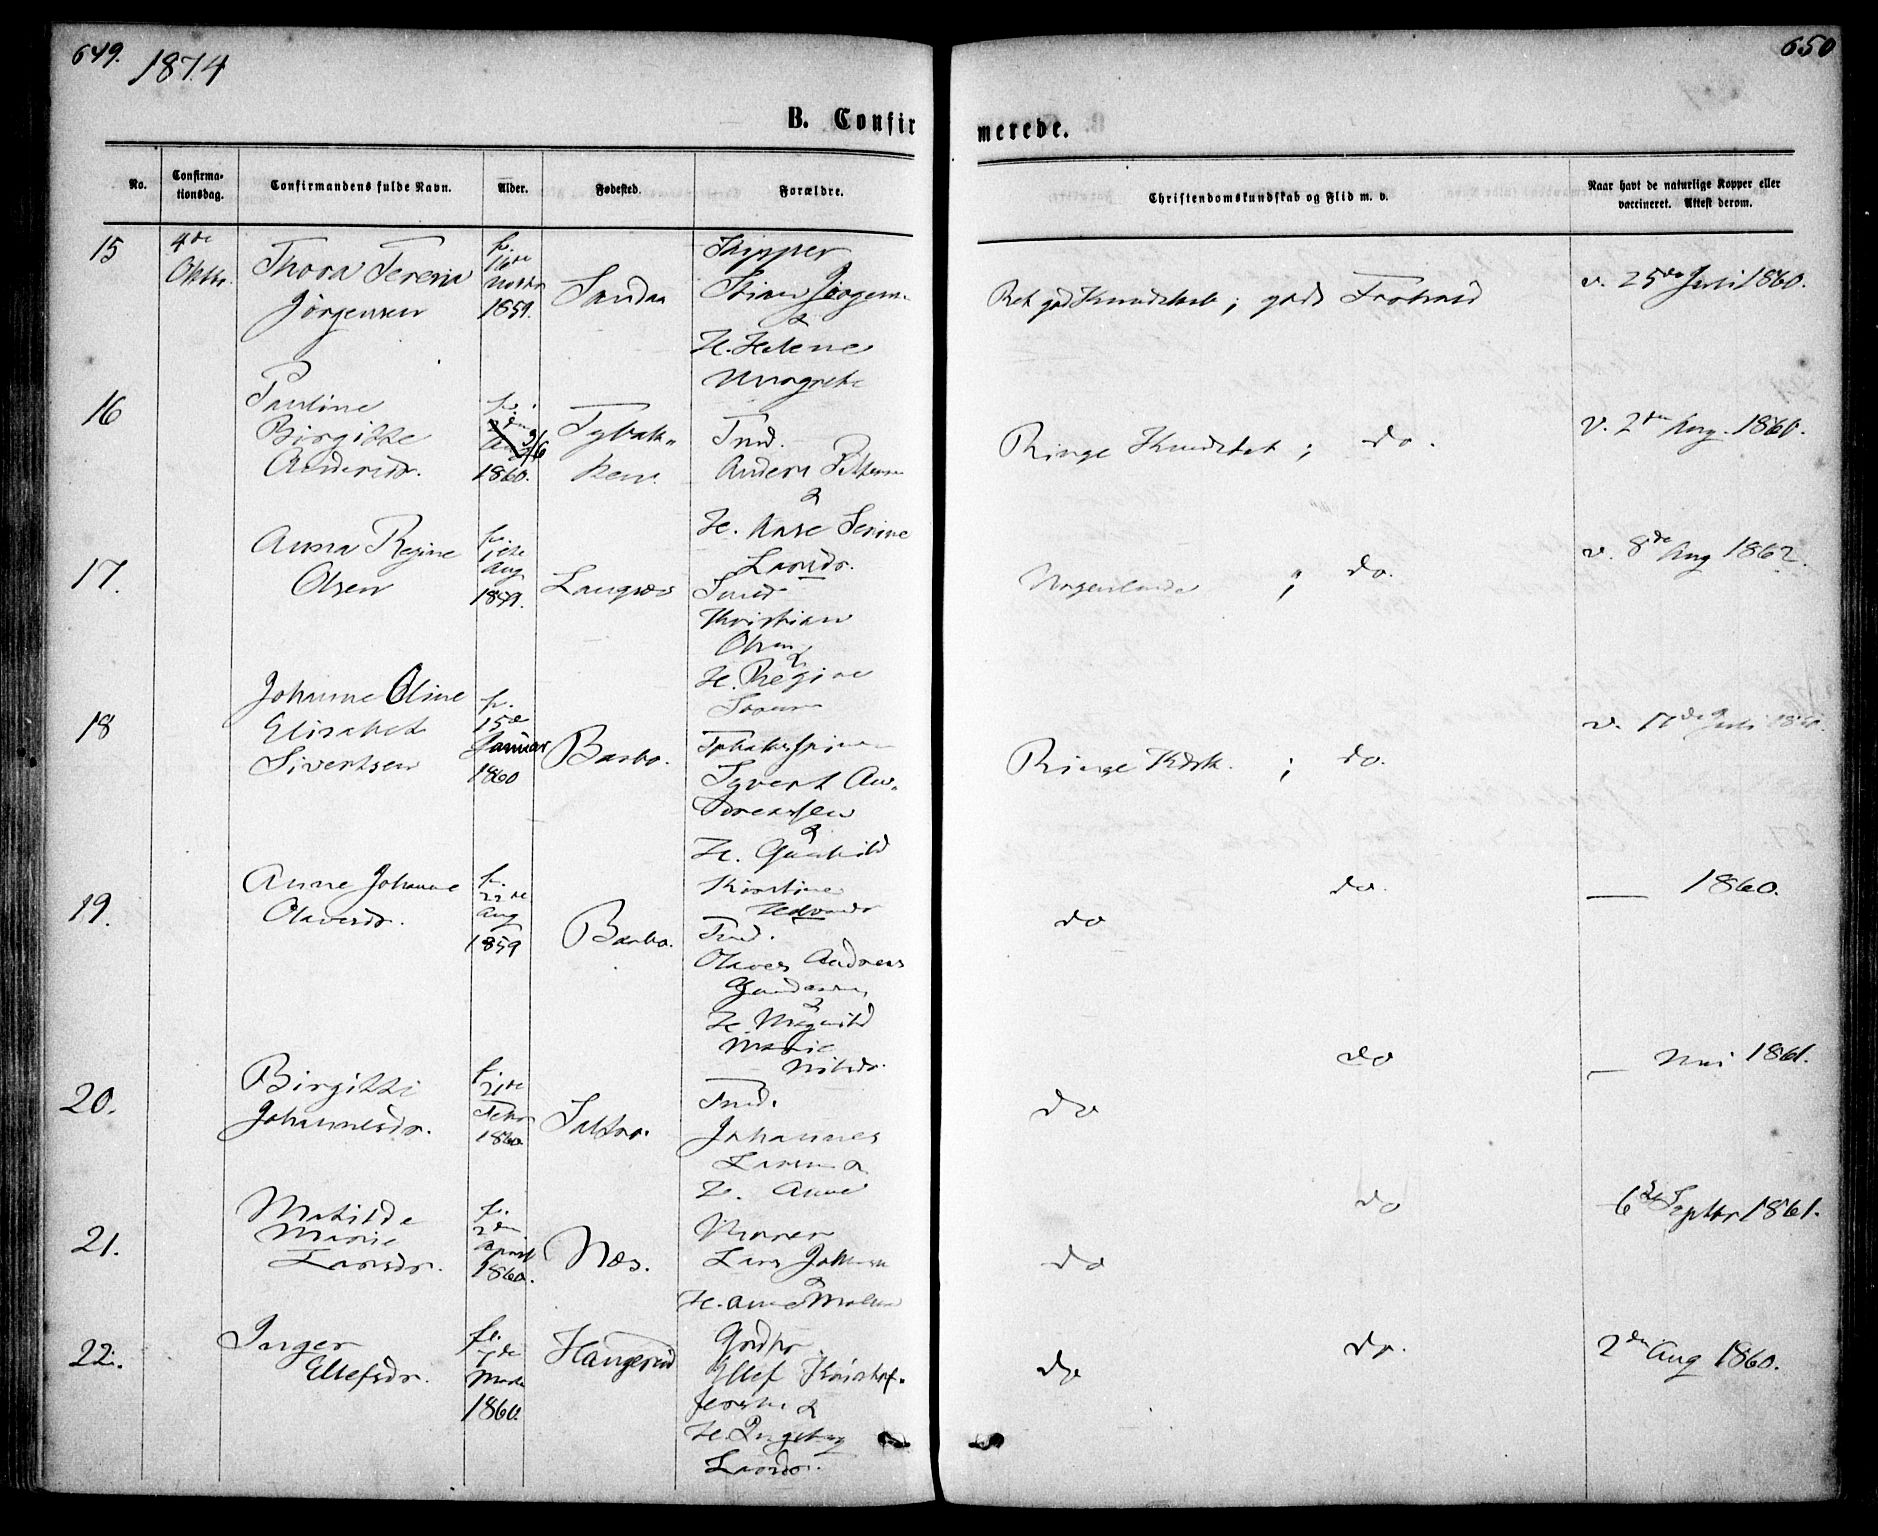 649.
1874
650
B. Confirmerede.
No.
Confirmationsdag.
Confirmandens fulde Navn.
Alder.
Fødested.
Forældre.
Christendomskundskab og Flid m. v.
Naar havt de naturlige Kopper eller
vaccineret. Attest derom.
15
4de
Oktbr.
Thora Teresia
Jörgensen
f.
16de
1859.
Sandaa
Skipper
Jörgens.
&
H. Helene
Margrete
god Kundskab; gods Forhold
v. 25de Juli 1860.
16
Pauline
Birgitte
Andersdr.
f.
2/6
1860.
Tybak-
ken
Tnd.
Anders
&
H. Aase Serine
Larsdr.
Ringe Kundskab; do.
V. 2den Aug. 1860.
17.
Anna Regine
Olsen
f.
1ste
Aug
1859.
Langnæs
Smed
Kristian
Olsen
&
H. Regine
; do.
v. 8de Aug 1862.
18
Johanne Oline
Elisabet
Sivertsen
f.
15de
Januar
1860
Barbo.
Syvert An-
dreassen
&
H. Gunhild
Kirstine
Ringe Kdsk. ; do.
v. 17de Juli
19.
Anne Johanne
Olavesdr.
f.
22de
Aug
1859
Barbo.
Tnd.
Olaves Andreas
Gundersen
&
H. Magnild
Marie
Nilsdr.
do
do.
— 1860.
20.
Birgitte
Johannesdr.
f.
21de
Febr
1860
Saltrø.
Tnd.
Johannes
Larsen &
H. Anne
do
do
— Mai 1861.
21.
Matilde
Marie
Larsdr.
f.
2den
April
1860.
Næs.
Murer
Lars Johnsen
&
H. Anne
do
do
6de Septbr 1861.
22.
Inger
Ellefsdr.
f.
7de
Marts
1860.
Haugerød
Gordbr.
Ellef Kristof-
fersen &
H. Ingeborg
Larsdr.
do
do.
2den Aug 1860.